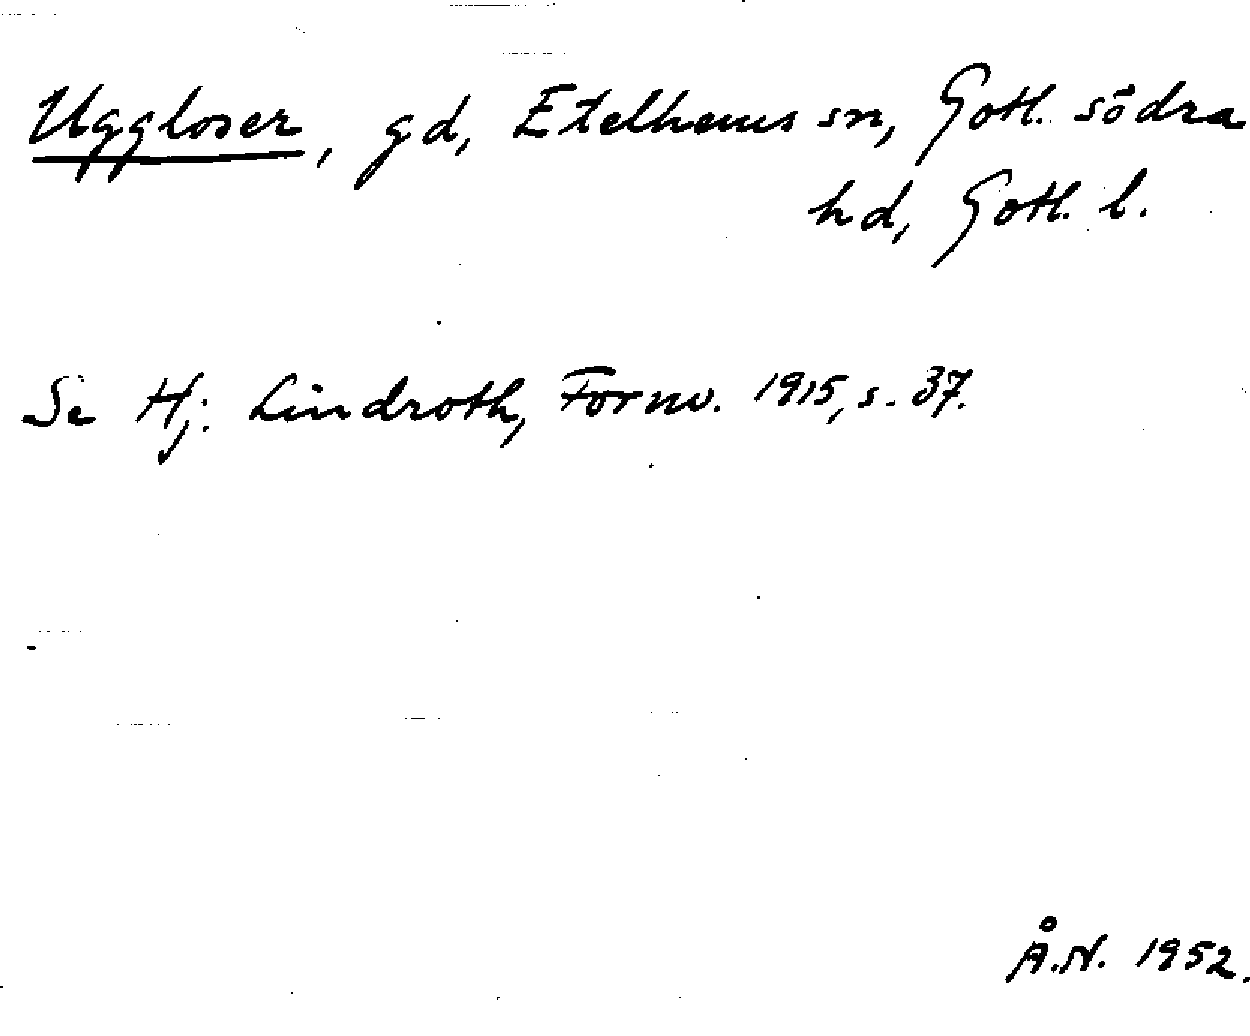 Uggloser, gd, Etelhems sn, Gotl. södra
hd, Gotl. l.
Se Hj. Lindroth, Fornv. 1915, s. 37.
Å.N. 1952.